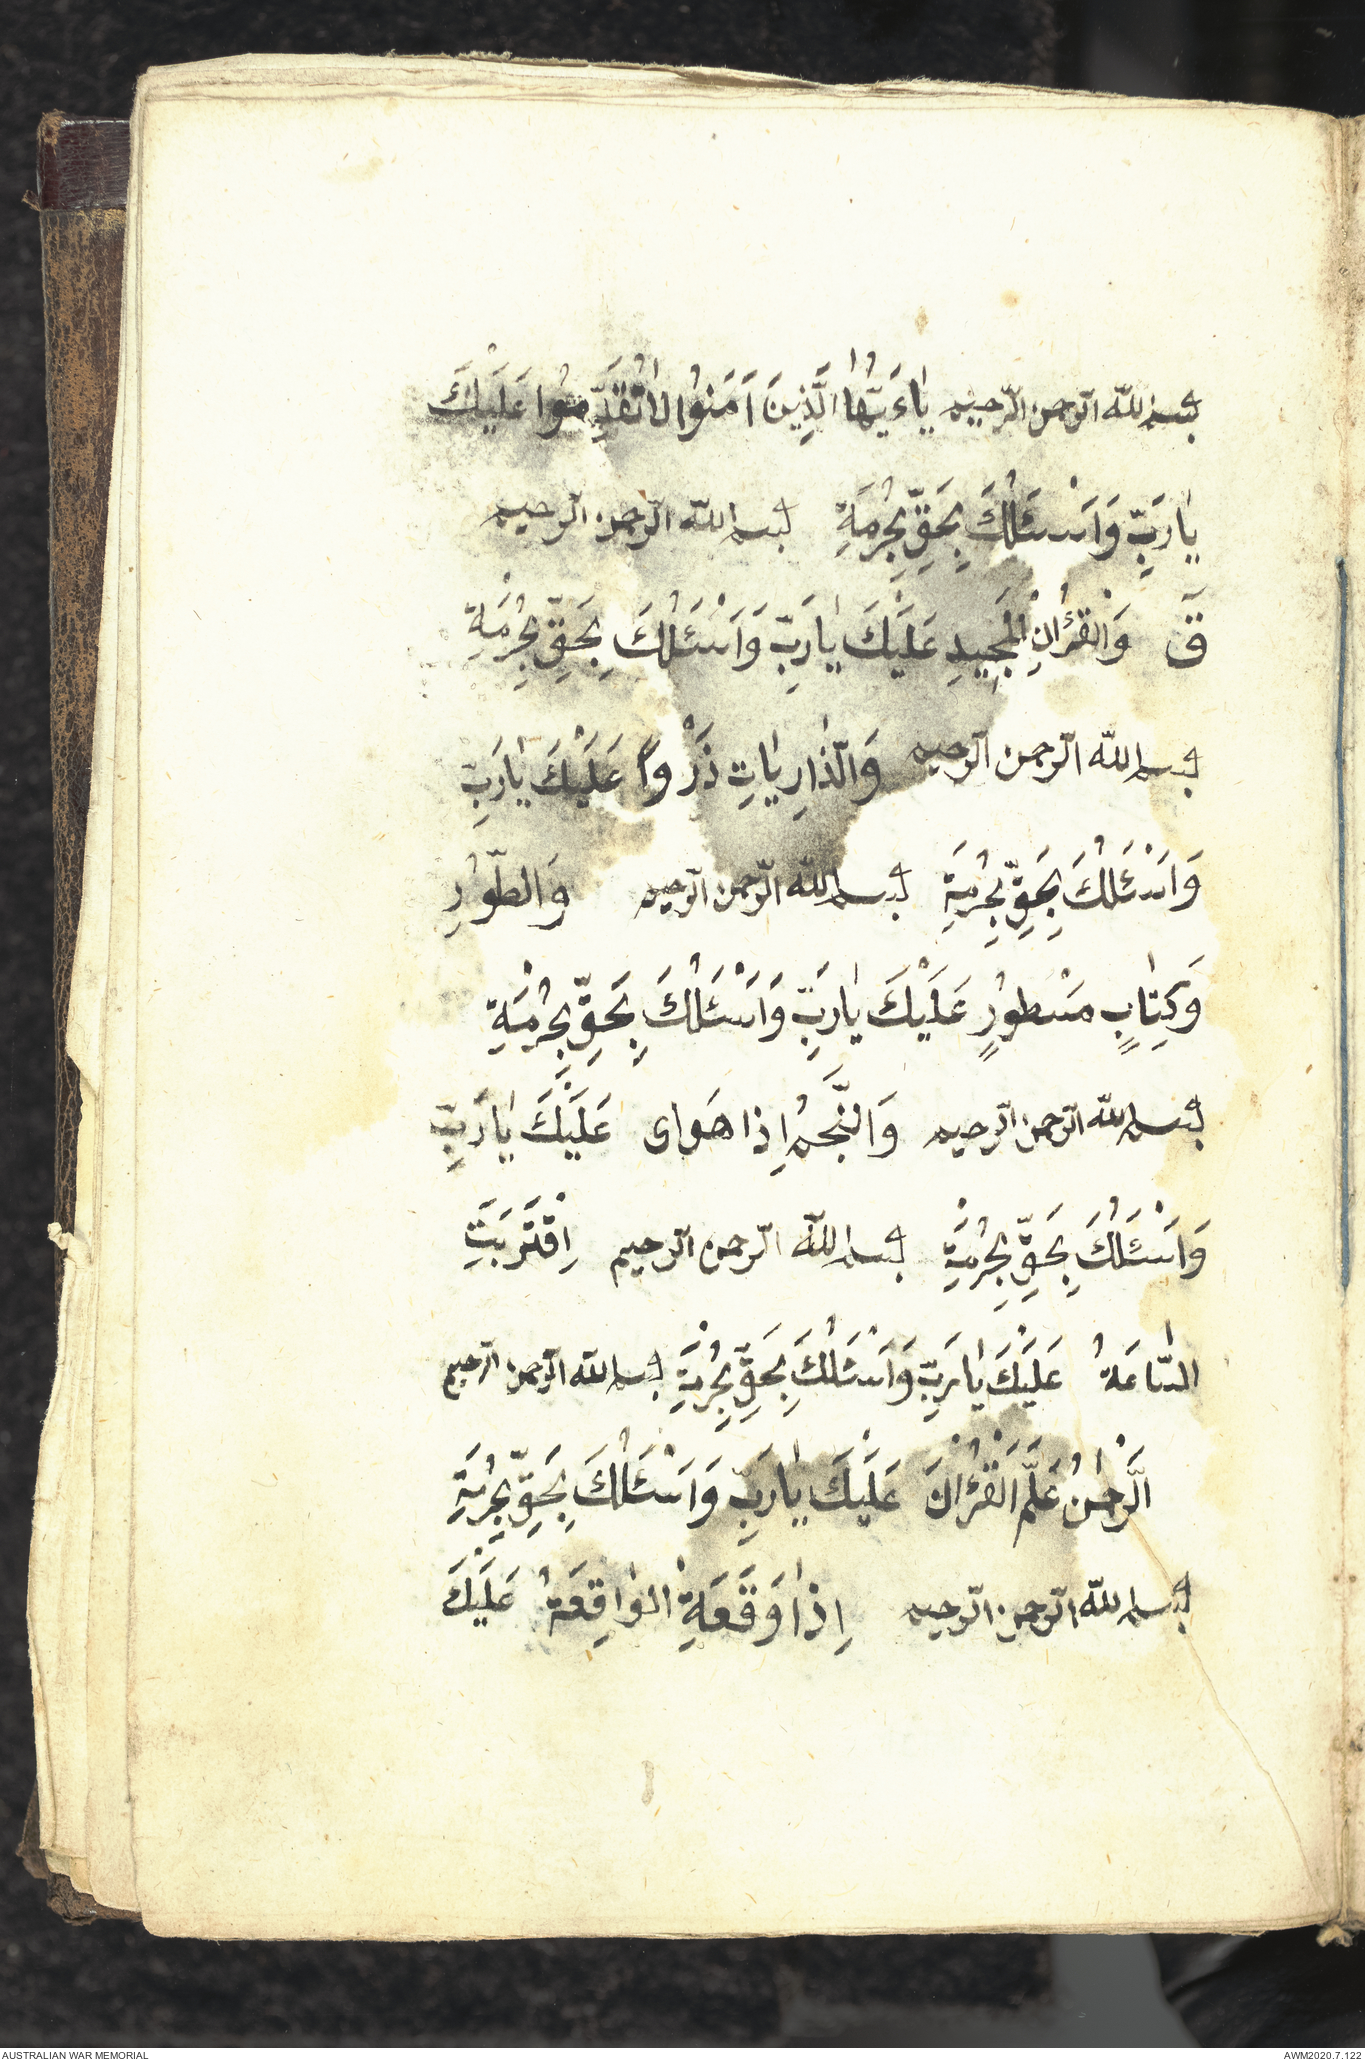 بسم الله الرحمن الرحيم يٰاءَيُّهٰا الَّذِينَ اَمَنوُا لاٰتُقَدِّموُا عَلَيْكَ
يٰارَبِّ وَاَسْئَلُكَ بِحَقِّ بِحُرْمَةِ بسم الله الرحمن الرحيم
قٓ وَالْقُرْءٰانِ الْمَجِيدِ عَلَيْكَ يٰارَبِّ وَاَسْئَلُكَ بِحَقِّ بِحُرْمَةِ
بسم الله الرحمن الرحيم وَالذّٰارِيٰاتِ ذَرْواً عَلَيْكَ يٰارَبِّ
وَاَسْئَلُكَ بِحَقِّ بِحُرْمَةِ بسم الله الرحمن الرحيم وَالطُّورِ
وَكِتٰابٍ مَسْطوُرٍ عَلَيْكَ يٰارَبِّ وَاَسْئَلُكَ بِحَقِّ بِحُرْمَةِ
بسم الله الرحمن الرحيم وَالنَّجْمِ اِذا هَواى عَلَيْكَ يٰارَبِّ
وَاَسْئَلُكَ بِحَقِّ بِحُرْمَةِ بسم الله الرحمن الرحيم اِقْتَرَبَتِ
السّٰاعَةُ عَلَيْكَ يٰارَبِّ وَاَسْئَلُكَ بِحَقِّ بِحُرْمَةِ بسم الله الرحمن الرحيم
الَرَّحْمٰنُ عَلَّمَ الْقُرْءٰانَ عَلَيْكَ يٰارَبِّ وَاَسْئَلُكَ بِحَقِّ بِحُرْمَةِ
بسم الله الرحمن الرحيم اِذٰا وَقَعَةِ الْوٰاقِعَةُ عَلَيْكَ
AUSTRALIAN WAR MEMORIAL
AWM2020.7.122